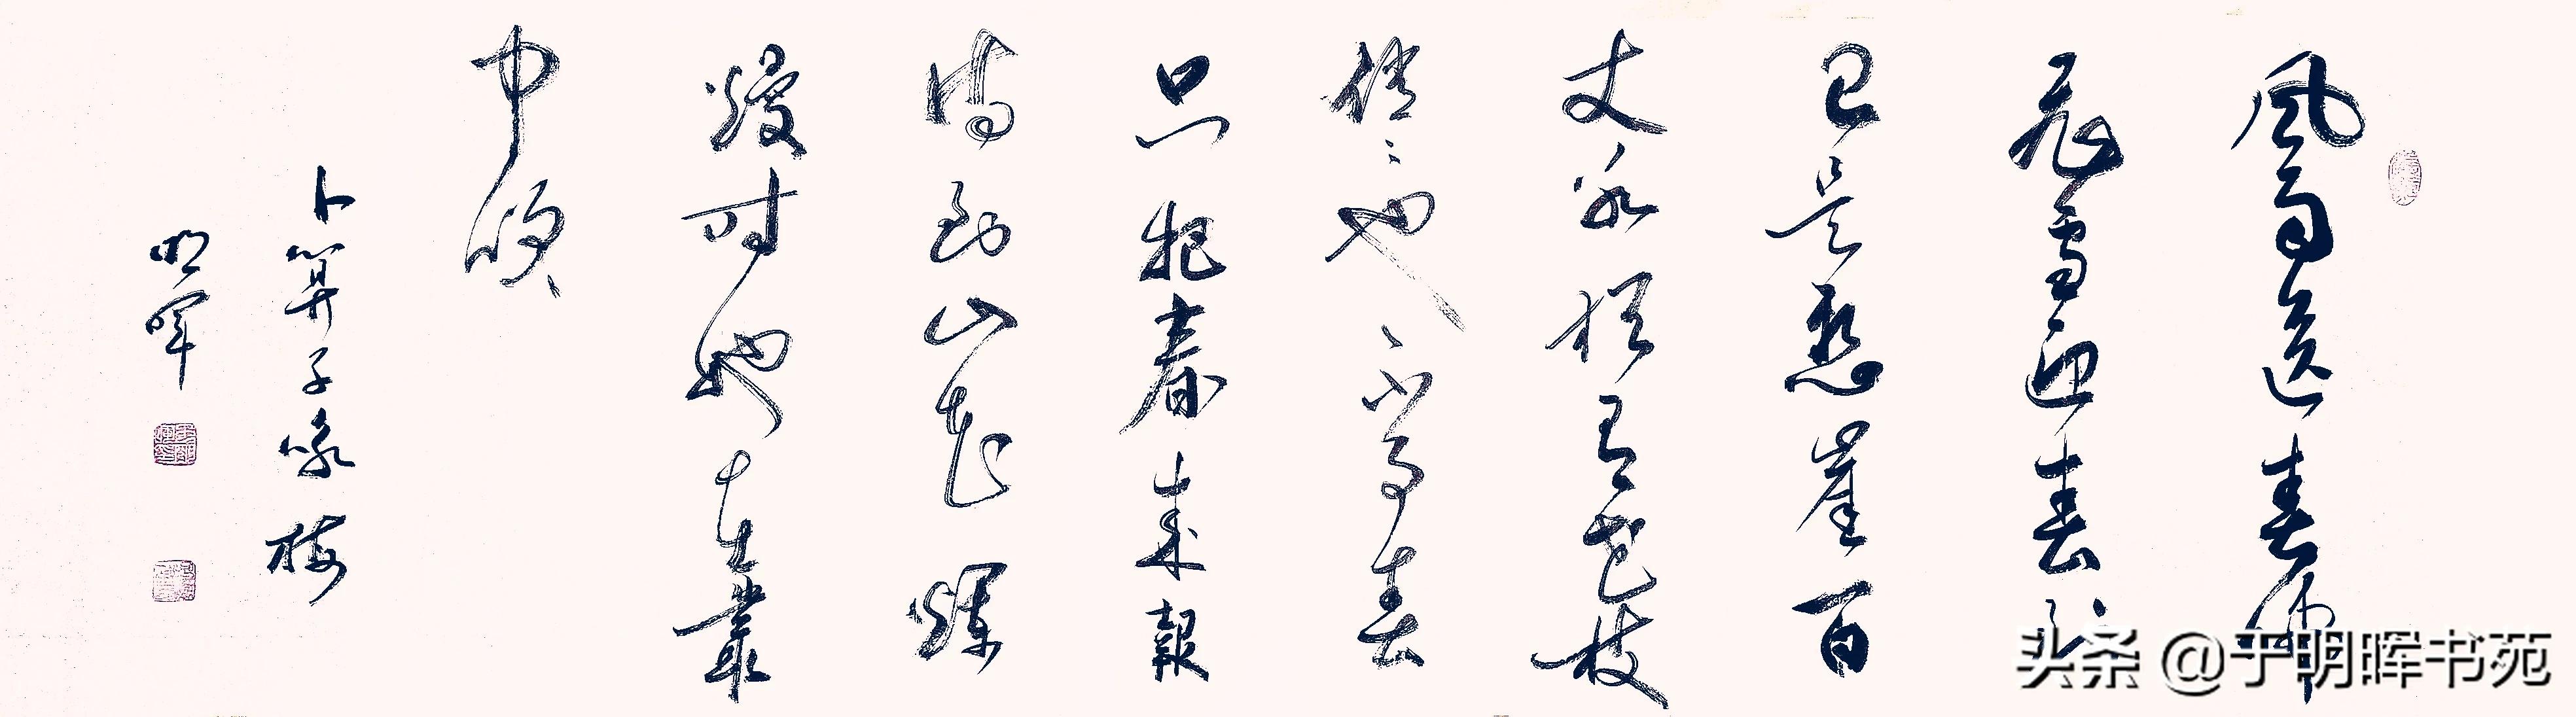 風雨送春歸
飛雪迎春到
已是懸崖百
丈冰猶有花枝
俏〻也不爭春
只把春來報
待到山花爛
熳時她在叢
中咲
卜算子咏梅
明暉
头条 @于明晖书苑